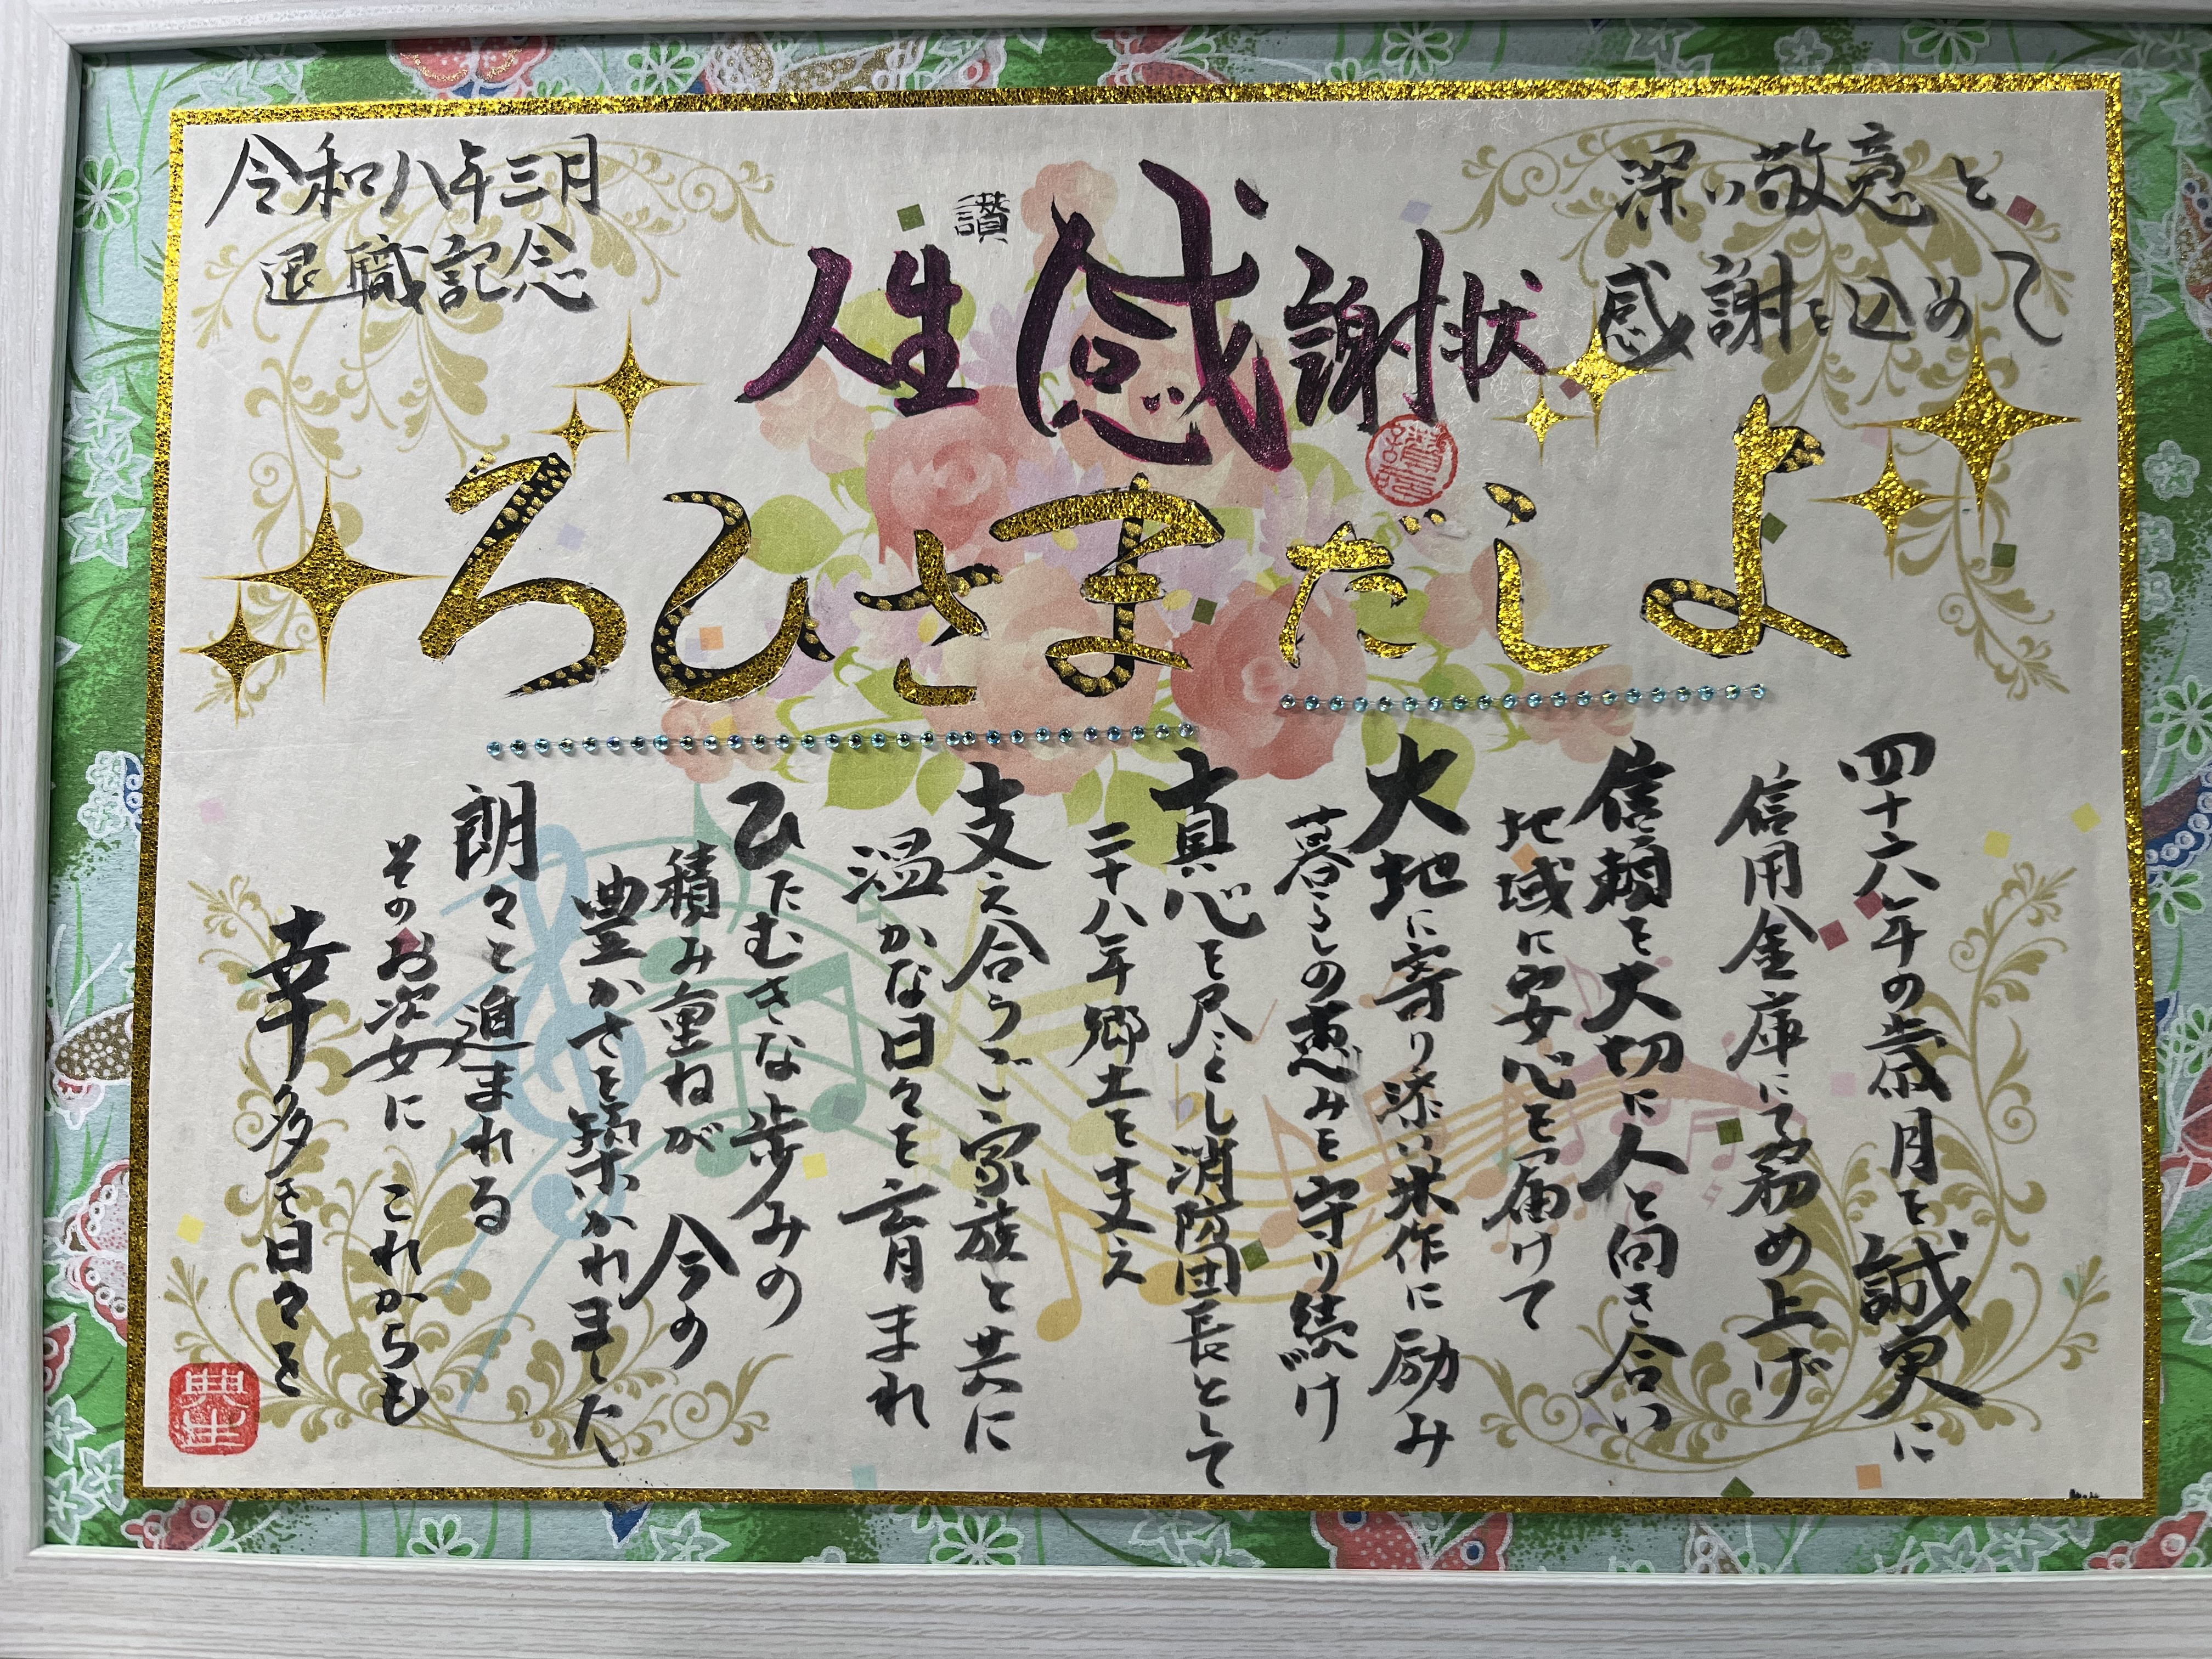 深い敬意と
感謝を込めて
讃
人生感謝状
よしだまさひろ
四十六年の歳月を誠実に
信用金庫に務め上げ
信頼を大切に人と向き合い
地域に安心を届けて
大地に寄り添い米作に励み
暮らしの恵みを守り続け
真心を尽くし消防団長として
二十八年郷土を支え
支え合うご家族と共に
温かな日々を育まれ
ひたむきな歩みの
積み重ねが 今の
豊かさを築かれました
朗々と進まれる
そのお姿に これからも
幸多き日々を
令和八年三月
退職記念